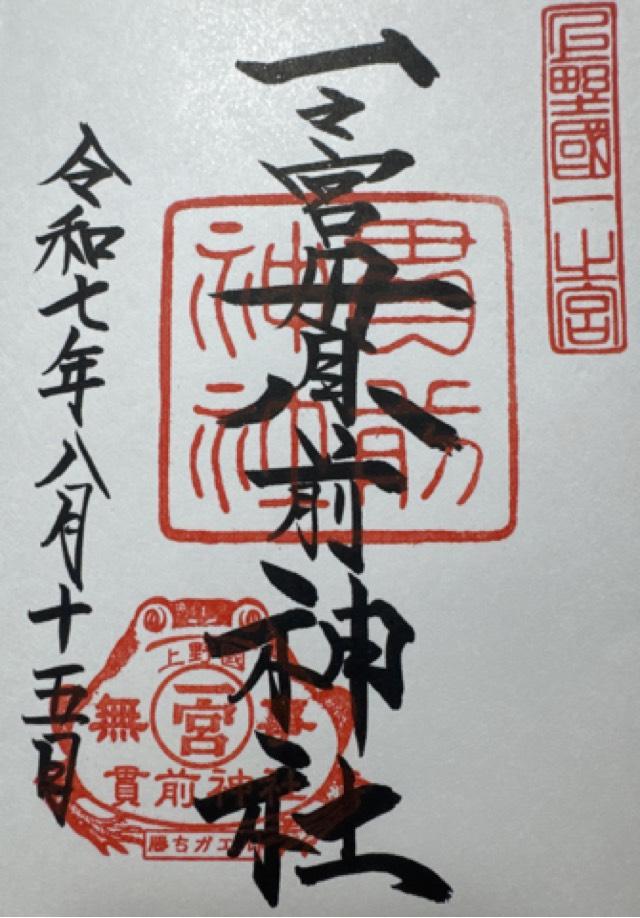 上野國一之宮
一之宮貫前神社
貫前
神社
令和七年八月十五日
上野國
無 一宮 事
貫前神社
勝ちガエル